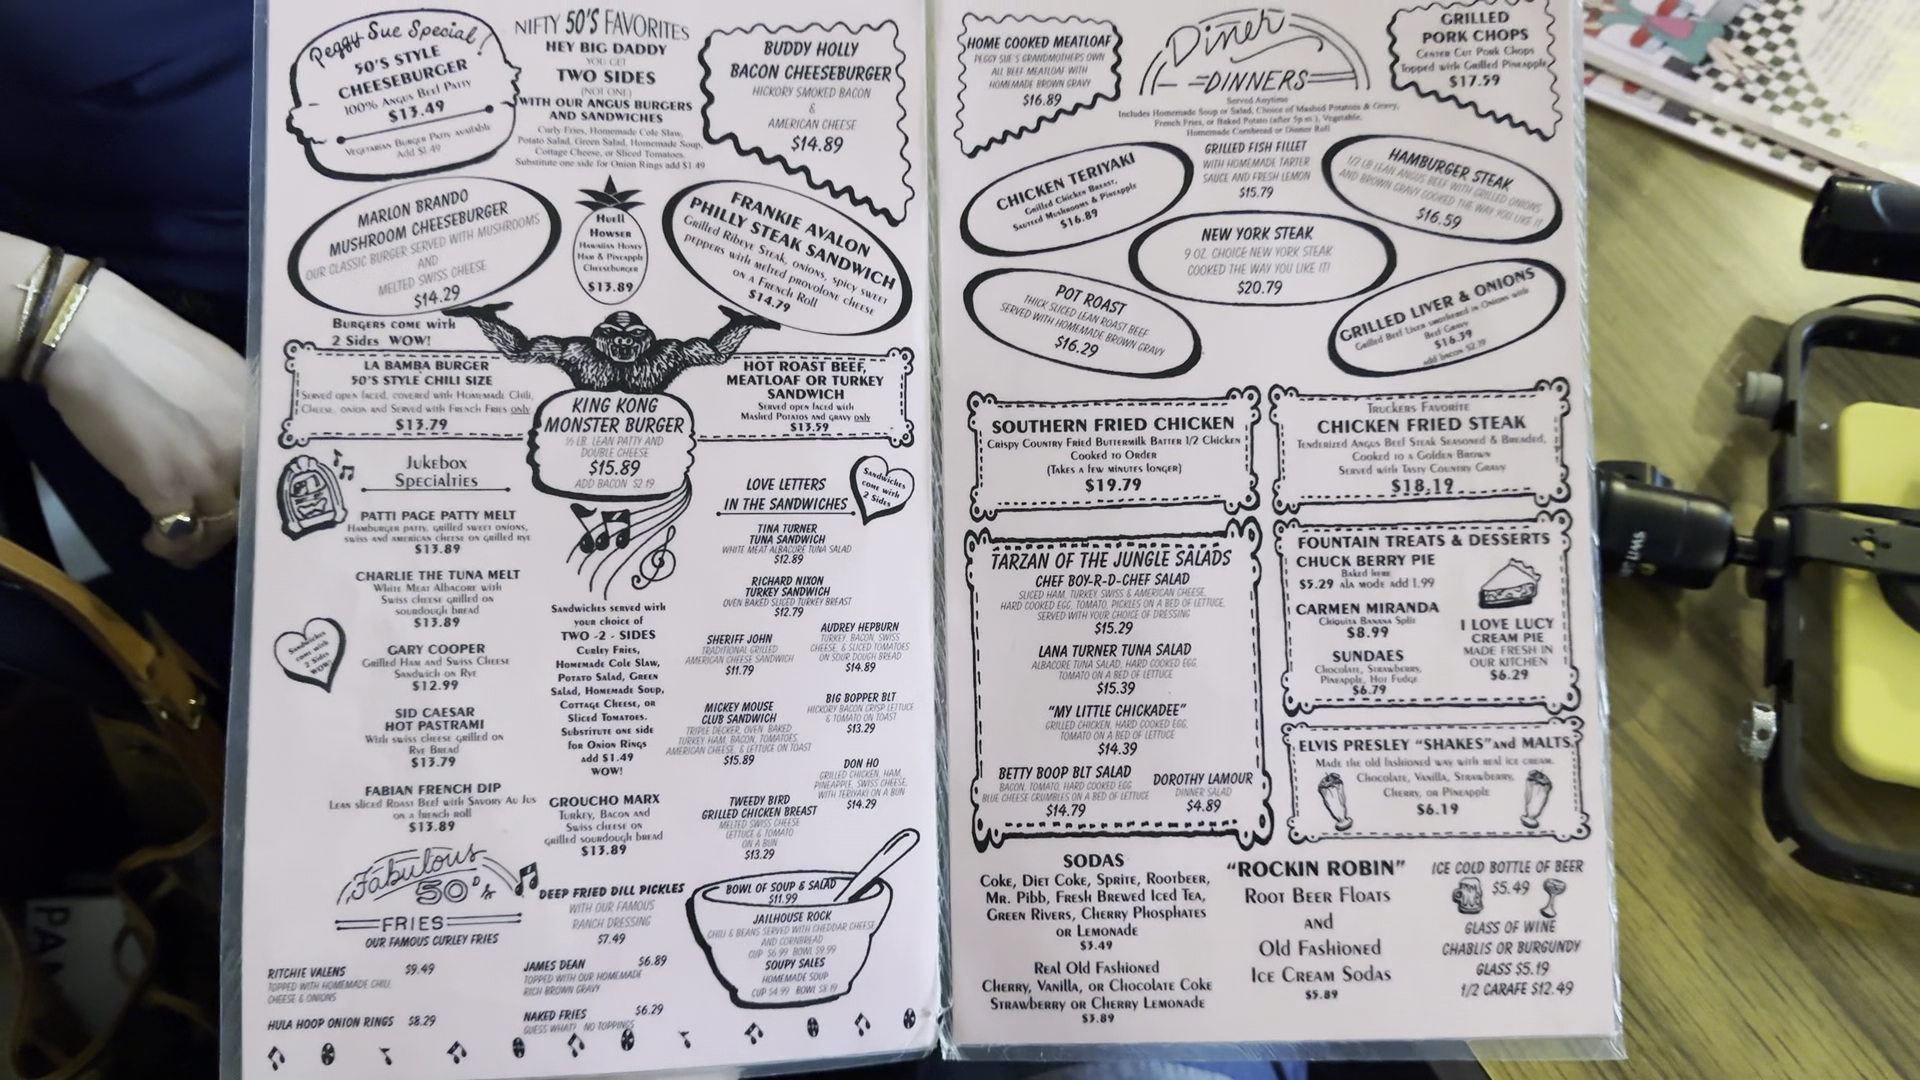 Peggy Sue Special!
50'S STYLE
CHEESEBURGER
100% Angus Beef Patty
$13.49
Vegetarian Burger Patty available
Add $1.49
NIFTY 50'S FAVORITES
HEY BIG DADDY
YOU GET
TWO SIDES
(NOT ONE)
WITH OUR ANGUS BURGERS
AND SANDWICHES
Curly Fries, Homemade Cole Slaw,
Potato Salad, Green Salad, Homemade Soup,
Cottage Cheese, or Sliced Tomatoes.
Substitute one side for Onion Rings add $1.49
BUDDY HOLLY
BACON CHEESEBURGER
HICKORY SMOKED BACON
&
AMERICAN CHEESE
$14.89
MARLON BRANDO
MUSHROOM CHEESEBURGER
OUR CLASSIC BURGER SERVED WITH MUSHROOMS
AND
MELTED SWISS CHEESE
$14.29
Huell
Howser
Hawaiian Honey
Ham & Pineapple
Cheeseburger
$13.89
FRANKIE AVALON
PHILLY STEAK SANDWICH
Grilled Ribeye Steak, onions, spicy sweet
peppers with melted provolone cheese
on a French Roll
$14.79
Burgers come with
2 Sides WOW!
LA BAMBA BURGER
50'S STYLE CHILI SIZE
Served open faced, covered with Homemade Chili,
Cheese, onion and Served with French Fries only
$13.79
KING KONG
MONSTER BURGER
½ LB. LEAN PATTY AND
DOUBLE CHEESE
$15.89
ADD BACON $2.19
HOT ROAST BEEF,
MEATLOAF OR TURKEY
SANDWICH
Served open faced with
Mashed Potatos and gravy only
$13.59
Jukebox
Specialties
PATTI PAGE PATTY MELT
Hamburger patty, grilled sweet onions,
swiss and american cheese on grilled rye
$13.89
CHARLIE THE TUNA MELT
White Meat Albacore with
Swiss cheese grilled on
sourdough bread
$13.89
Sandwiches
come with
2 Sides
WOW!
GARY COOPER
Grilled Ham and Swiss Cheese
Sandwich on Rye
$12.99
SID CAESAR
HOT PASTRAMI
With swiss cheese grilled on
Rye Bread
$13.79
FABIAN FRENCH DIP
Lean sliced Roast Beef with Savory Au Jus
on a french roll
$13.89
Sandwiches served with
your choice of
TWO -2 - SIDES
Curley Fries,
Homemade Cole Slaw,
Potato Salad, Green
Salad, Homemade Soup,
Cottage Cheese, or
Sliced Tomatoes.
Substitute one side
for Onion Rings
add $1.49
WOW!
GROUCHO MARX
Turkey, Bacon and
Swiss cheese on
grilled sourdough bread
$13.89
LOVE LETTERS
IN THE SANDWICHES
Sandwiches
come with
2 Sides
TINA TURNER
TUNA SANDWICH
WHITE MEAT ALBACORE TUNA SALAD
$12.89
RICHARD NIXON
TURKEY SANDWICH
OVEN BAKED SLICED TURKEY BREAST
$12.79
SHERIFF JOHN
TRADITIONAL GRILLED
AMERICAN CHEESE SANDWICH
$11.79
AUDREY HEPBURN
TURKEY, BACON, SWISS
CHEESE, & SLICED TOMATOES
ON SOUR DOUGH BREAD
$14.89
MICKEY MOUSE
CLUB SANDWICH
TRIPLE DECKER, OVEN BAKED
TURKEY, HAM, BACON, TOMATOES,
AMERICAN CHEESE, & LETTUCE ON TOAST
$15.89
BIG BOPPER BLT
HICKORY BACON CRISP LETTUCE
& TOMATO ON TOAST
$13.29
DON HO
GRILLED CHICKEN, HAM,
PINEAPPLE, SWISS CHEESE,
WITH TERIYAKI ON A BUN
$14.29
TWEEDY BIRD
GRILLED CHICKEN BREAST
MELTED SWISS CHEESE
LETTUCE & TOMATO
ON A BUN
$13.29
Fabulous
50'
FRIES
OUR FAMOUS CURLEY FRIES
DEEP FRIED DILL PICKLES
WITH OUR FAMOUS
RANCH DRESSING
$7.49
RITCHIE VALENS $9.49
TOPPED WITH HOMEMADE CHILI,
CHEESE & ONIONS
JAMES DEAN $6.89
TOPPED WITH OUR HOMEMADE
RICH BROWN GRAVY
HULA HOOP ONION RINGS $8.29
NAKED FRIES $6.29
GUESS WHAT? NO TOPPINGS
BOWL OF SOUP & SALAD
$11.99
JAILHOUSE ROCK
CHILI & BEANS SERVED WITH CHEDDAR CHEESE
AND CORNBREAD
CUP $6.99 BOWL $9.99
SOUPY SALES
HOMEMADE SOUP
CUP $4.99 BOWL $8.19
HOME COOKED MEATLOAF
PEGGY SUE'S GRANDMOTHERS OWN
ALL BEEF MEATLOAF WITH
HOMEMADE BROWN GRAVY
$16.89
Diner
DINNERS
Served Anytime
Includes Homemade Soup or Salad, Choice of Mashed Potatoes & Gravy,
French Fries, or Baked Potato (after 5p.m.), Vegetable,
Homemade Cornbread or Dinner Roll
GRILLED
PORK CHOPS
Center Cut Pork Chops
Topped with Grilled Pineapple
$17.59
CHICKEN TERIYAKI
Grilled Chicken Breast,
Sauteed Mushrooms & Pineapple
$16.89
GRILLED FISH FILLET
WITH HOMEMADE TARTER
SAUCE AND FRESH LEMON
$15.79
HAMBURGER STEAK
1/2 LB LEAN ANGUS BEEF WITH GRILLED ONIONS
AND BROWN GRAVY COOKED THE WAY YOU LIKE IT
$16.59
NEW YORK STEAK
9 OZ. CHOICE NEW YORK STEAK
COOKED THE WAY YOU LIKE IT!
$20.79
POT ROAST
THICK SLICED LEAN ROAST BEEF
SERVED WITH HOMEMADE BROWN GRAVY
$16.29
GRILLED LIVER & ONIONS
Grilled Beef Liver smothered in Onions with
Beef Gravy
$16.39
add bacon $2.19
SOUTHERN FRIED CHICKEN
Crispy Country Fried Buttermilk Batter 1/2 Chicken
Cooked to Order
(Takes a few minutes longer)
$19.79
Truckers Favorite
CHICKEN FRIED STEAK
Tenderized Angus Beef Steak Seasoned & Breaded,
Cooked to a Golden Brown
Served with Tasty Country Gravy
$18.19
TARZAN OF THE JUNGLE SALADS
CHEF BOY-R-D-CHEF SALAD
SLICED HAM, TURKEY, SWISS & AMERICAN CHEESE,
HARD COOKED EGG, TOMATO, PICKLES ON A BED OF LETTUCE,
SERVED WITH YOUR CHOICE OF DRESSING
$15.29
LANA TURNER TUNA SALAD
ALBACORE TUNA SALAD, HARD COOKED EGG,
TOMATO ON A BED OF LETTUCE
$15.39
"MY LITTLE CHICKADEE"
GRILLED CHICKEN, HARD COOKED EGG,
TOMATO ON A BED OF LETTUCE
$14.39
BETTY BOOP BLT SALAD
BACON, TOMATO, HARD COOKED EGG
BLUE CHEESE CRUMBLES ON A BED OF LETTUCE
$14.79
DOROTHY LAMOUR
DINNER SALAD
$4.89
FOUNTAIN TREATS & DESSERTS
CHUCK BERRY PIE
Baked here
$5.29 ala mode add 1.99
CARMEN MIRANDA
Chiquita Banana Split
$8.99
SUNDAES
Chocolate, Strawberry,
Pineapple, Hot Fudge
$6.79
I LOVE LUCY
CREAM PIE
MADE FRESH IN
OUR KITCHEN
$6.29
ELVIS PRESLEY "SHAKES" and MALTS
Made the old fashioned way with real ice cream.
Chocolate, Vanilla, Strawberry,
Cherry, or Pineapple
$6.19
SODAS
Coke, Diet Coke, Sprite, Rootbeer,
Mr. Pibb, Fresh Brewed Iced Tea,
Green Rivers, Cherry Phosphates
or Lemonade
$3.49
Real Old Fashioned
Cherry, Vanilla, or Chocolate Coke
Strawberry or Cherry Lemonade
$3.89
"ROCKIN ROBIN"
Root Beer Floats
and
Old Fashioned
Ice Cream Sodas
$5.89
ICE COLD BOTTLE OF BEER
$5.49
GLASS OF WINE
CHABLIS OR BURGUNDY
GLASS $5.19
1/2 CARAFE $12.49